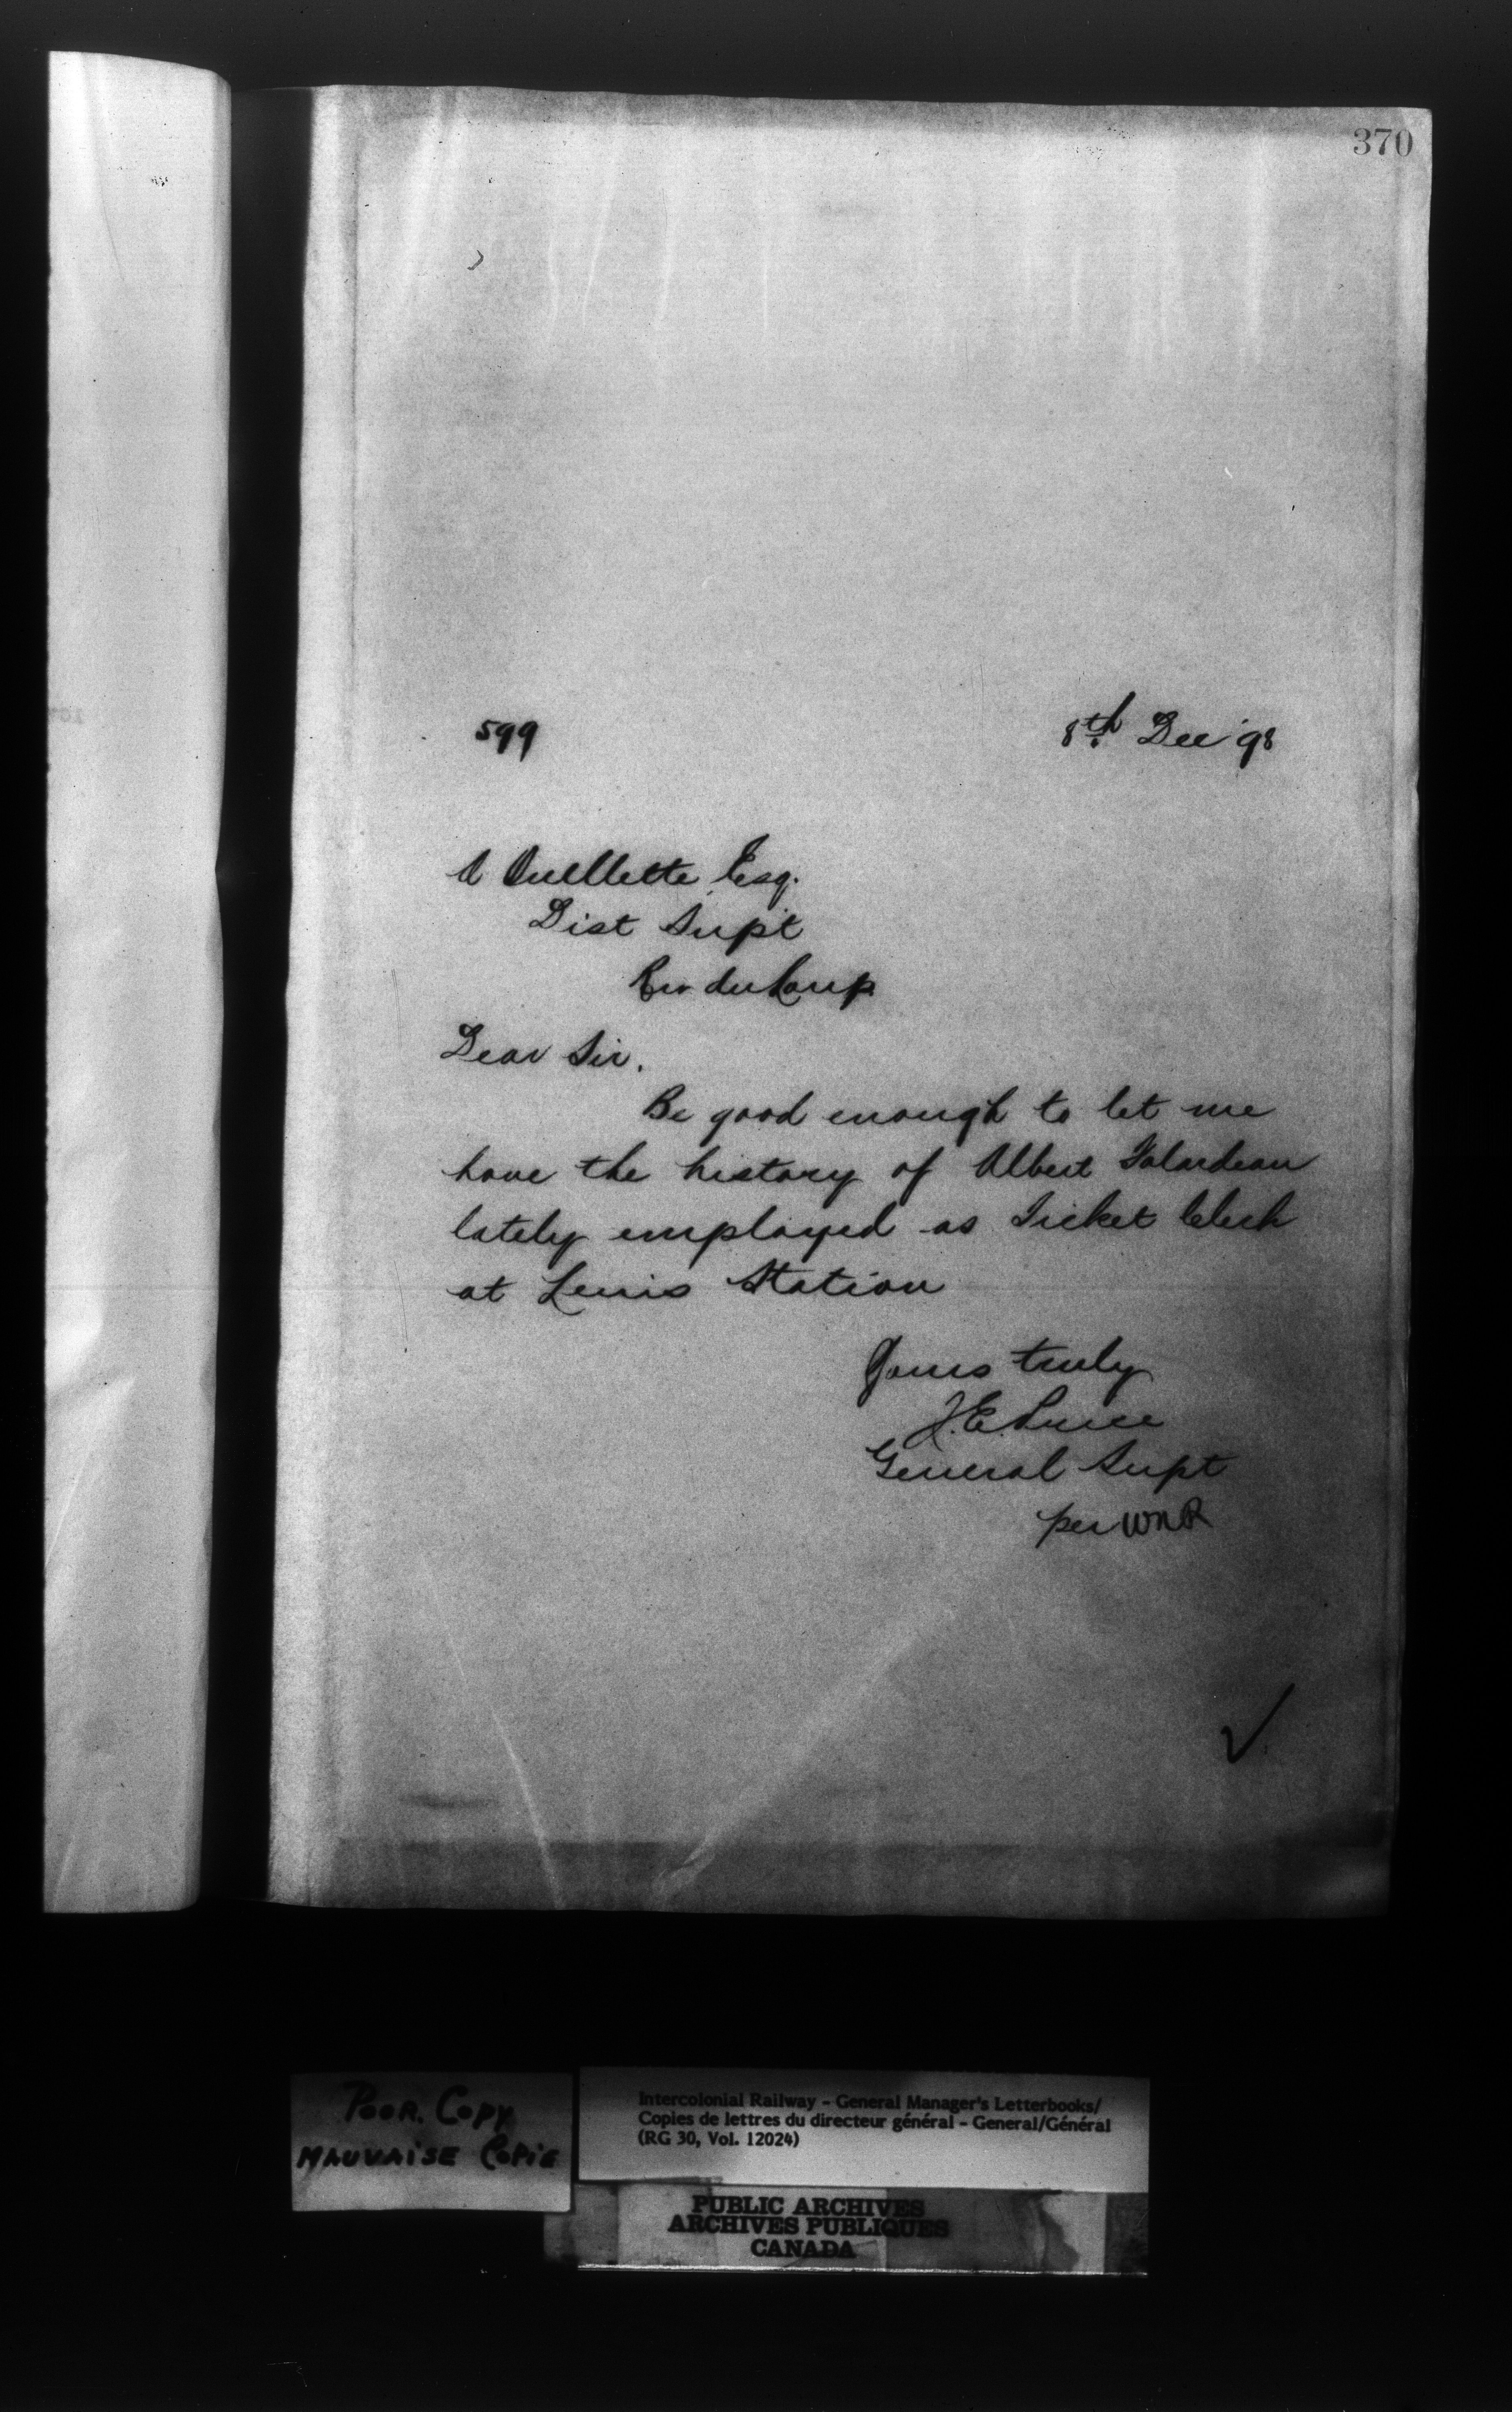 370
599
8th Dec '98
A Ouellette Esq.
Dist Supt
Riv du Loup
Dear Sir,
Be good enough to let me
have the history of Albert Falardeau
lately employed as Ticket Clerk
at Levis Station
Yours truly
J.E. Price
General Supt
per WNR
POOR. COPY
MAUVAISE COPIE
Intercolonial Railway - General Manager's Letterbooks/
Copies de lettres du directeur général - General/Général
(RG 30, Vol. 12024)
PUBLIC ARCHIVES
ARCHIVES PUBLIQUES
CANADA